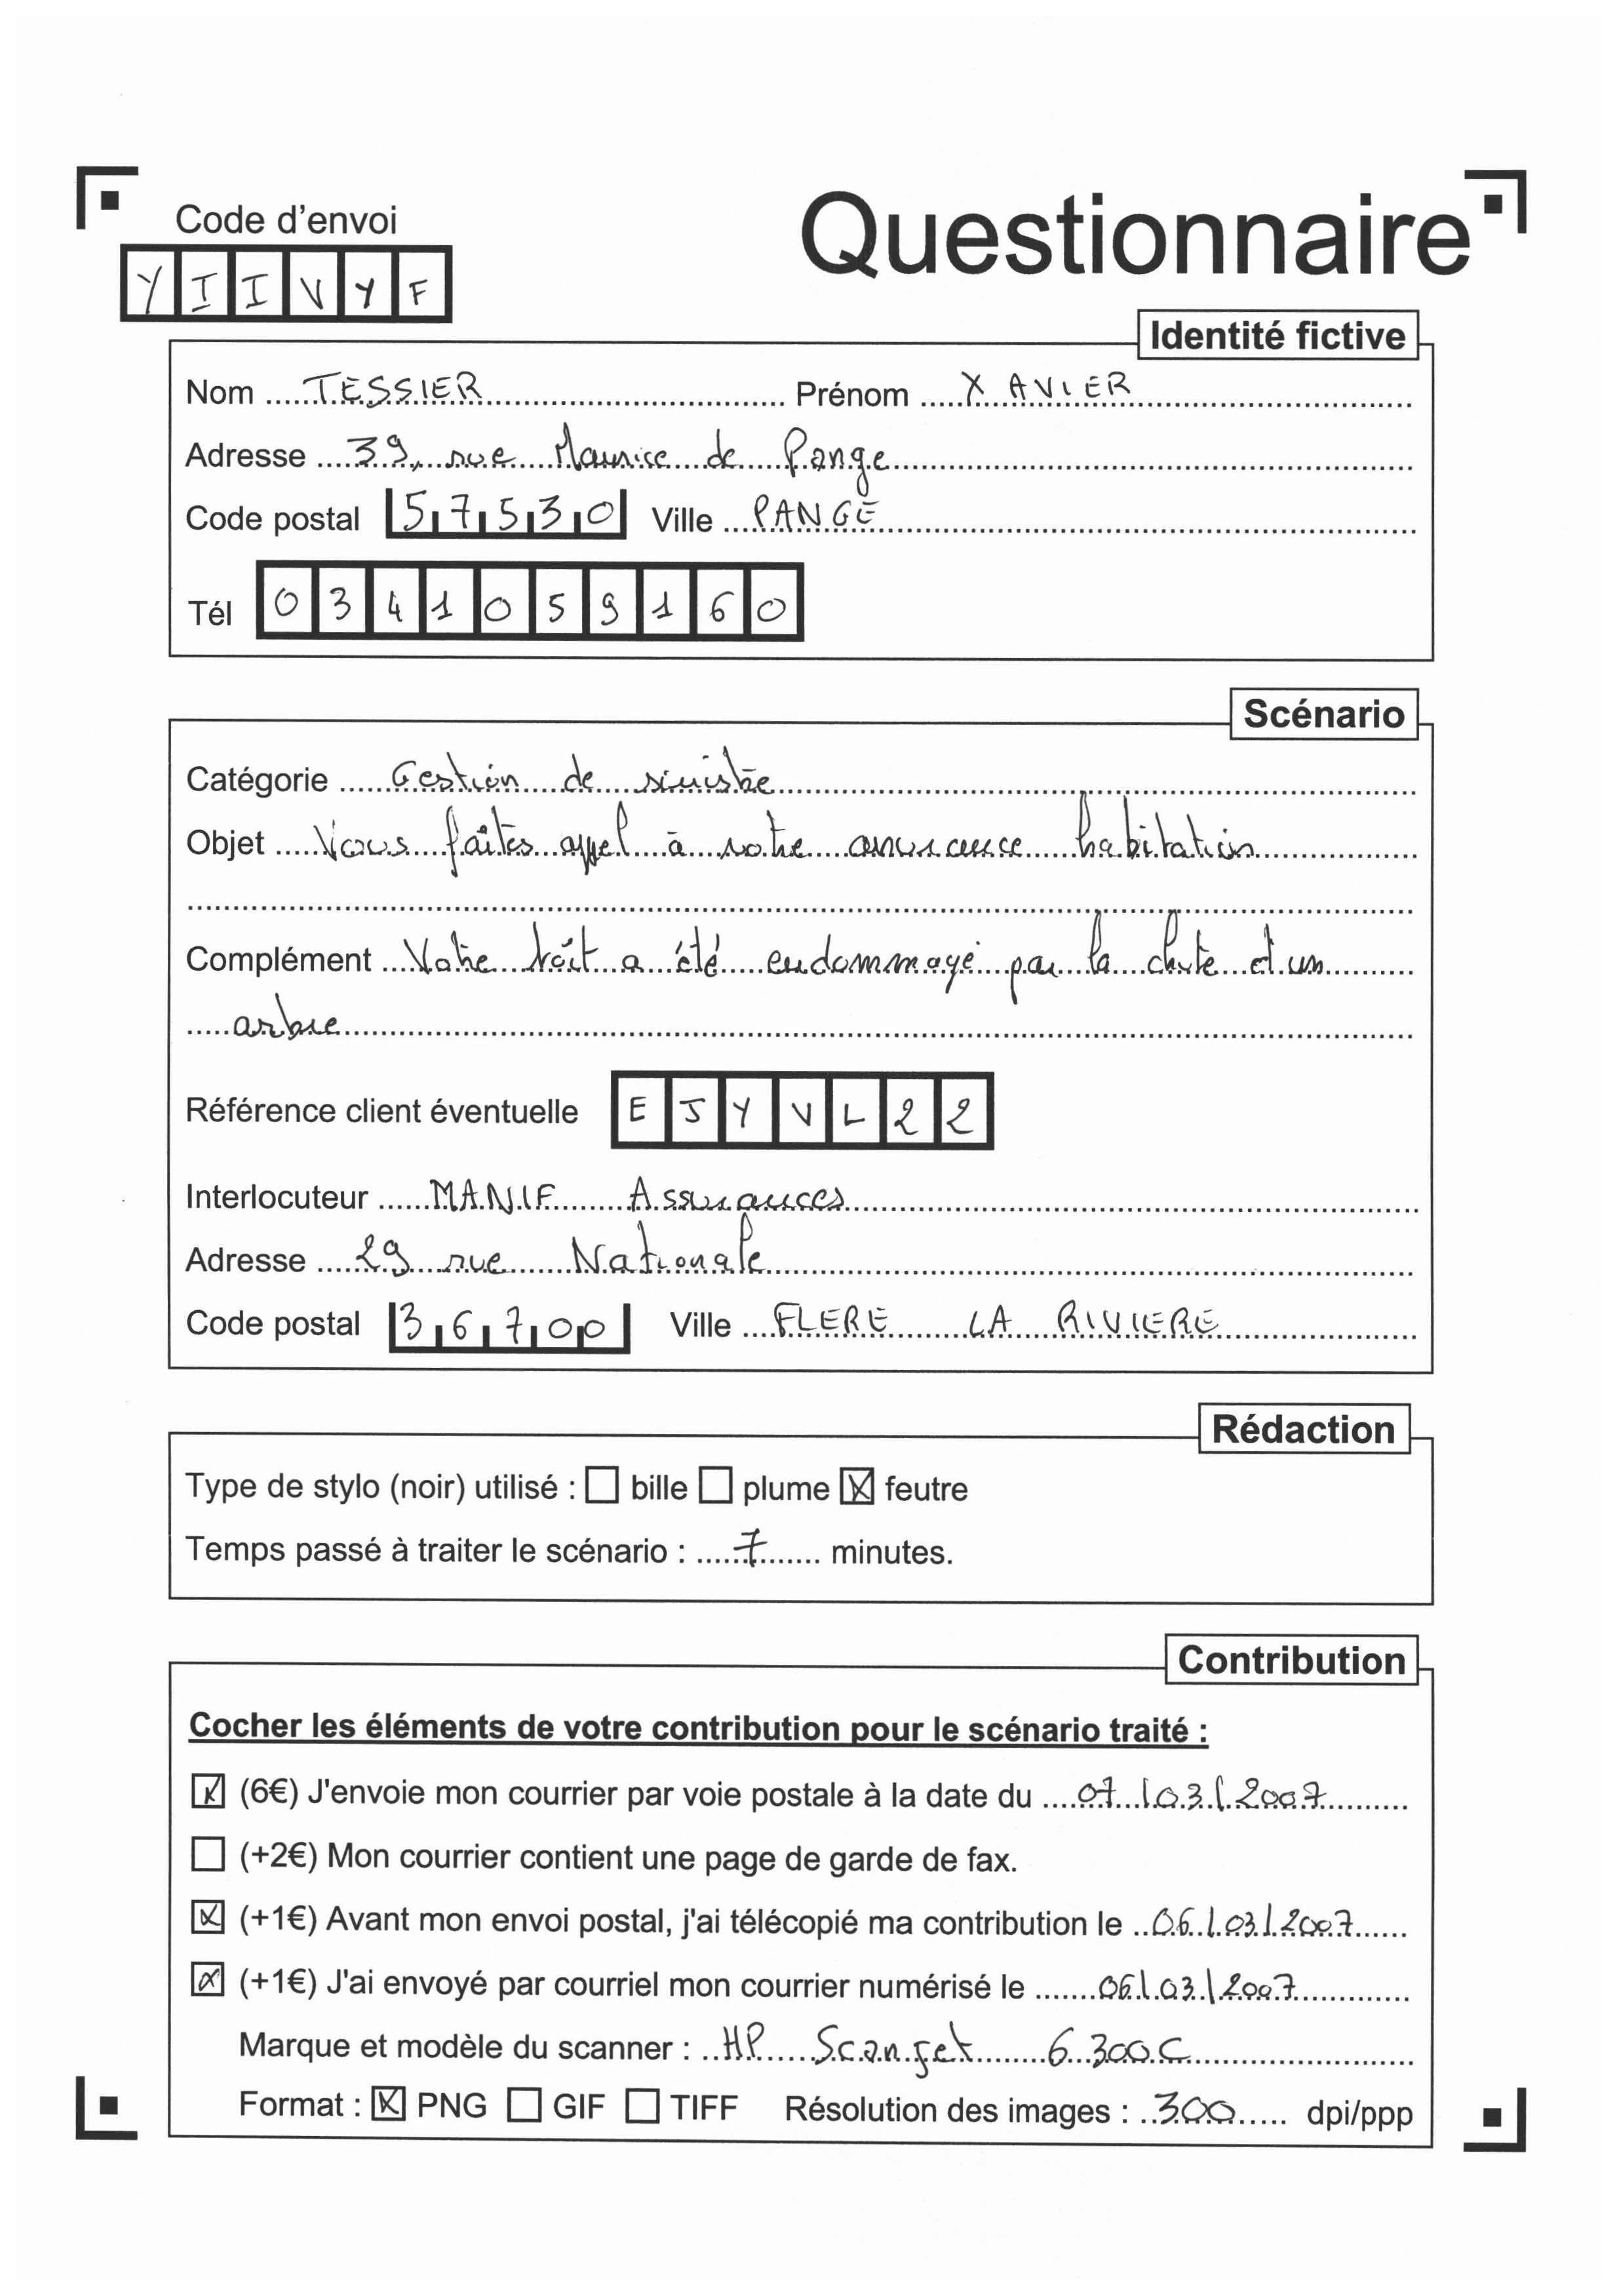 Code d'envoi
Questionnaire
YIIVYF
Identité fictive
Nom TESSIER Prénom XAVIER
Adresse 39, rue Maurice de Pange
Code postal 57530 Ville PANGE
Tél 0341059160
Scénario
Catégorie Gestion de sinistre
Objet Vous faites appel à votre assurance habitation
Complément Votre toit a été endommagé par la chute d'un
arbre
Référence client éventuelle EJYVL22
Interlocuteur MANIF Assurances
Adresse 29 rue Nationale
Code postal 36700 Ville FLERE LA RIVIERE
Rédaction
Type de stylo (noir) utilisé : ☐ bille ☐ plume ☒ feutre
Temps passé à traiter le scénario : 7 minutes.
Contribution
Cocher les éléments de votre contribution pour le scénario traité :
☒ (6€) J'envoie mon courrier par voie postale à la date du 07/03/2007
☐ (+2€) Mon courrier contient une page de garde de fax.
☒ (+1€) Avant mon envoi postal, j'ai télécopié ma contribution le 06/03/2007
☒ (+1€) J'ai envoyé par courriel mon courrier numérisé le 06/03/2007
Marque et modèle du scanner : HP Scanjet 6300C
Format : ☒ PNG ☐ GIF ☐ TIFF Résolution des images : 300 dpi/ppp